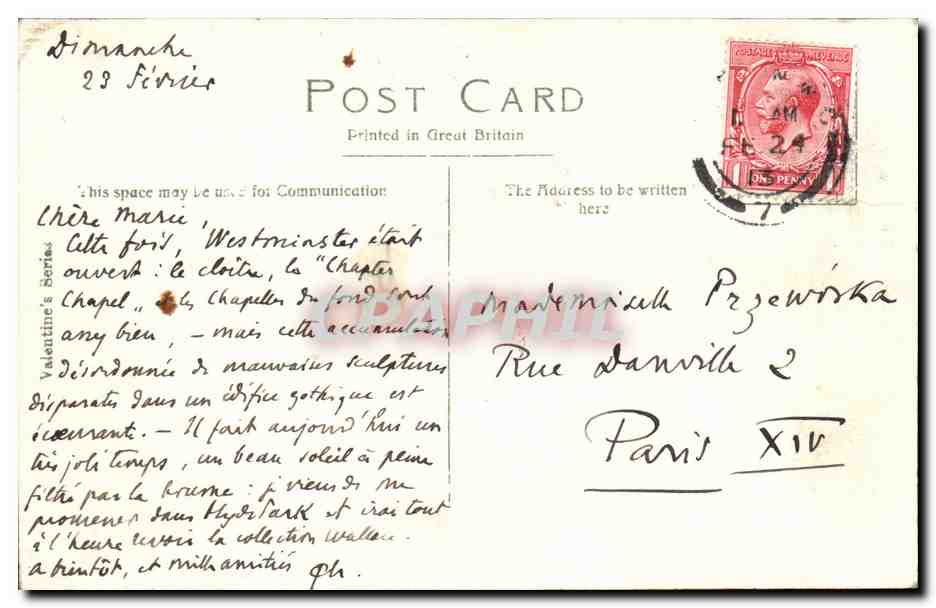 Dimanche
23 Février
POST CARD
Printed in Great Britain
This space may be used for Communication
The Address to be written
here
Valentine's Series
POSTAGE REVENUE
ONE PENNY
AM
FE 24
13
7
Chère Marie,
Cette fois, Westminster était
ouvert : le cloître, la "Chapter
Chapel" et les Chapelles du fond sont
assez bien, — mais cette accumulation
désordonnée de mauvaises sculptures
disparates dans un édifice gothique est
écœurante. — Il fait aujourd'hui un
très joli temps, un beau soleil à peine
filtré par la brume : je viens de me
promener dans Hyde Park et irai tout
à l'heure revoir la collection Wallace.
A bientôt, et mille amitiés Ph.
Mademoiselle Przewórska
Rue Danville 2
Paris XIV
CPAPHIL